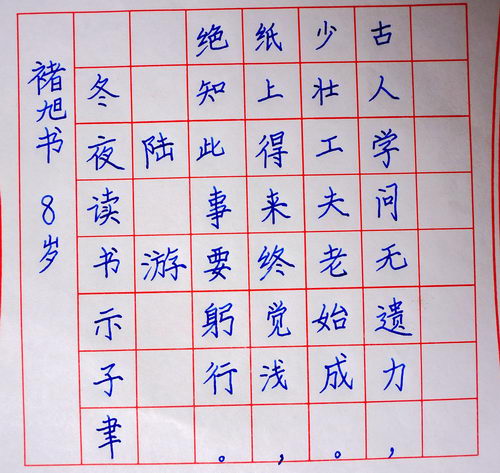 古人学问无遗力，
少壮工夫老始成。
纸上得来终觉浅，
绝知此事要躬行。
陆游
冬夜读书示子聿
褚旭书 8岁